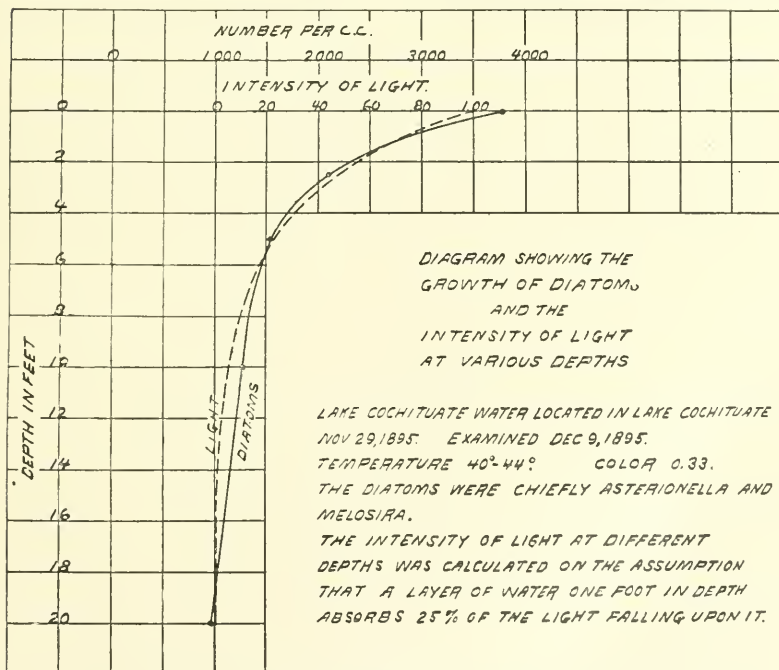 NUMBER PER C.C.
0 1000 2000 3000 4000
INTENSITY OF LIGHT.
0 20 40 60 80 1.00
0
2
4
6
8
10
12
14
16
18
20
DEPTH IN FEET
LIGHT
DIATOMS
DIAGRAM SHOWING THE
GROWTH OF DIATOMS
AND THE
INTENSITY OF LIGHT
AT VARIOUS DEPTHS
LAKE COCHITUATE WATER LOCATED IN LAKE COCHITUATE
NOV 29, 1895. EXAMINED DEC 9, 1895.
TEMPERATURE 40°-44° COLOR 0.33.
THE DIATOMS WERE CHIEFLY ASTERIONELLA AND
MELOSIRA.
THE INTENSITY OF LIGHT AT DIFFERENT
DEPTHS WAS CALCULATED ON THE ASSUMPTION
THAT A LAYER OF WATER ONE FOOT IN DEPTH
ABSORBS 25% OF THE LIGHT FALLING UPON IT.